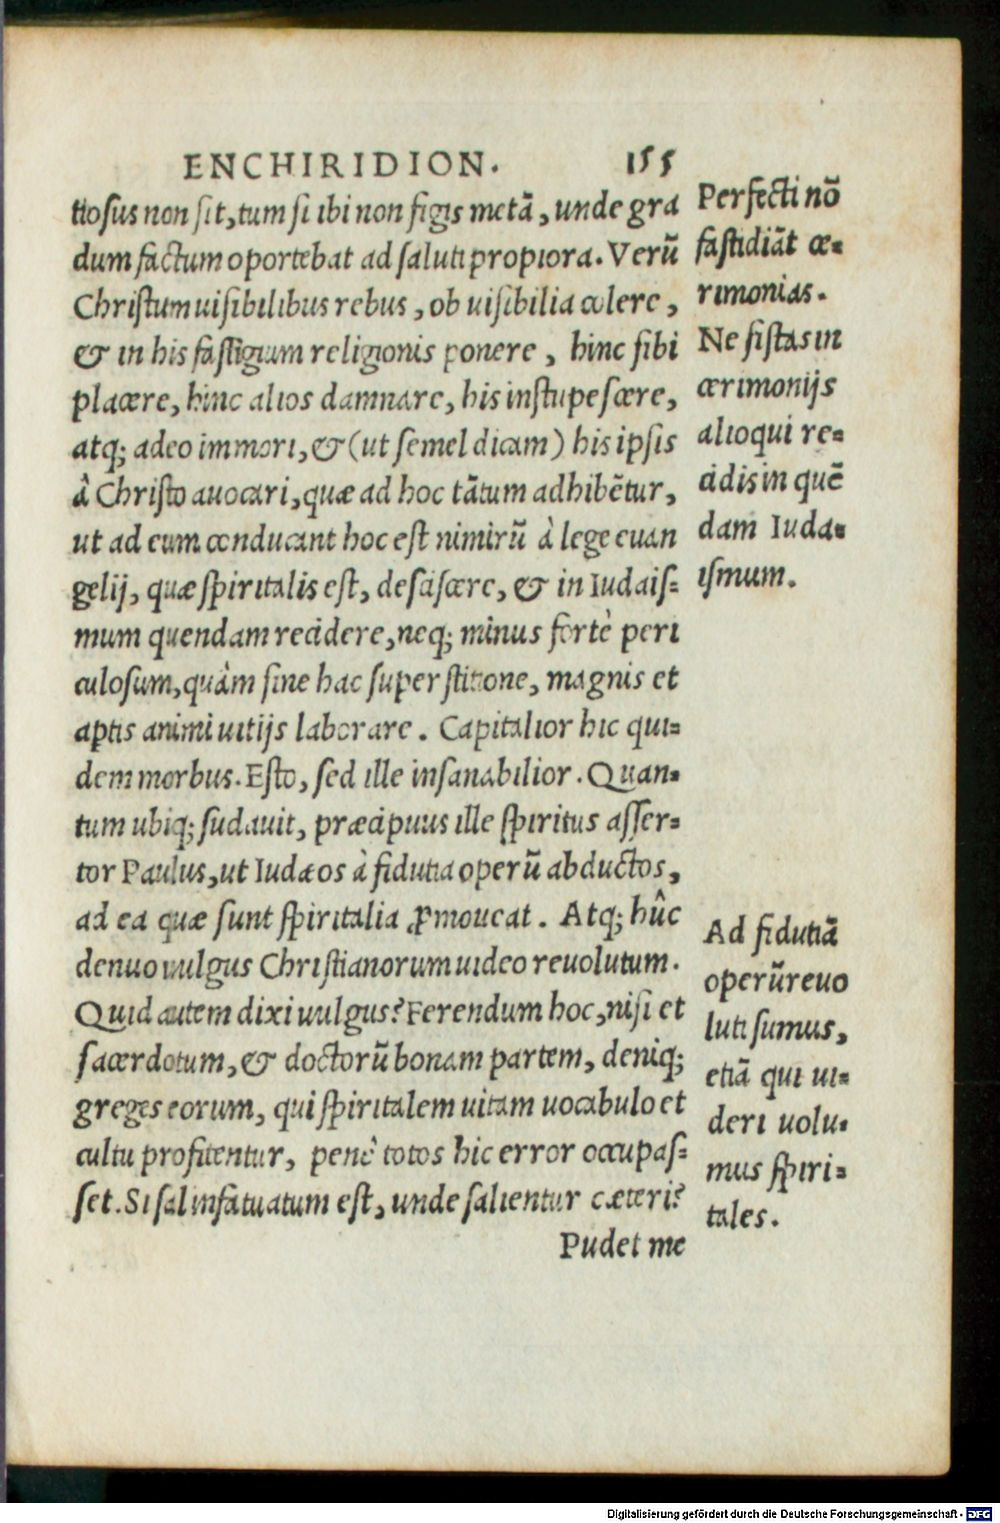 ENCHIRIDION. 155
tiosus non sit, tum si ibi non figis metā, unde gra
dum factum oportebat ad saluti propiora. Verū
Christum uisibilibus rebus, ob uisibilia colere,
& in his fastigium religionis ponere, hinc sibi
placere, hinc alios damnare, his instupescere,
atq; adeo immori, & (ut semel dicam) his ipsis
à Christo auocari, quæ ad hoc tātum adhibētur,
ut ad eum conducant hoc est nimirū à lege euan
gelij, quæ spiritalis est, desciscere, & in Iudais=
mum quendam recidere, neq; minus fortè peri
culosum, quàm sine hac superstitione, magnis et
aptis animi uitijs laborare. Capitalior hic qui=
dem morbus. Esto, sed ille insanabilior. Quan=
tum ubiq; sudauit, præcipuus ille spiritus asser=
tor Paulus, ut Iudæos à fidutia operū abductos,
ad ea quæ sunt spiritalia ꝓmoueat. Atq; hûc
denuo uulgus Christianorum uideo reuolutum.
Quid autem dixi uulgus? Ferendum hoc, nisi et
sacerdotum, & doctorū bonam partem, deniq;
greges eorum, qui spiritalem uitam uocabulo et
cultu profitentur, penè totos hic error occupas=
set. Si sal infatuatum est, unde salientur cæteri?
Pudet me
Perfecti nō
fastidiāt ce=
rimonias.
Ne sistas in
cerimonijs
alioqui re=
cidis in quē
dam Iuda=
ismum.
Ad fidutiā
operū reuo
luti sumus,
etiā qui ui=
deri uolu=
mus spiri=
tales.
Digitalisierung gefördert durch die Deutsche Forschungsgemeinschaft - DFG